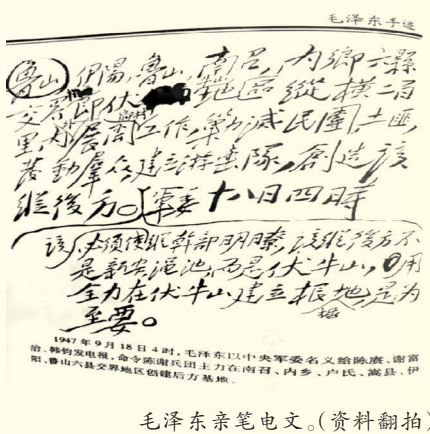 毛泽东手迹
魯山 伊陽,魯山,南召,内鄉六縣
交界即伏牛山地區縱橫二百
里,开展週圍工作,剿滅民團,土匪,
發動羣众建立游击隊,創造該
縱後方。軍委十八日四時
該
必須使幹部明瞭,該縱後方不
是新安澠池,而是伏牛山,用
全力在伏牛山建立根據地,是为
至要。
1947年9月18日4时,毛泽东以中央军委名义给陈赓、谢富
治、韩钧发电报,命令陈谢兵团主力在南召、内乡、卢氏、嵩县、伊
阳、鲁山六县交界地区创建后方基地。
毛泽东亲笔电文。(资料翻拍)